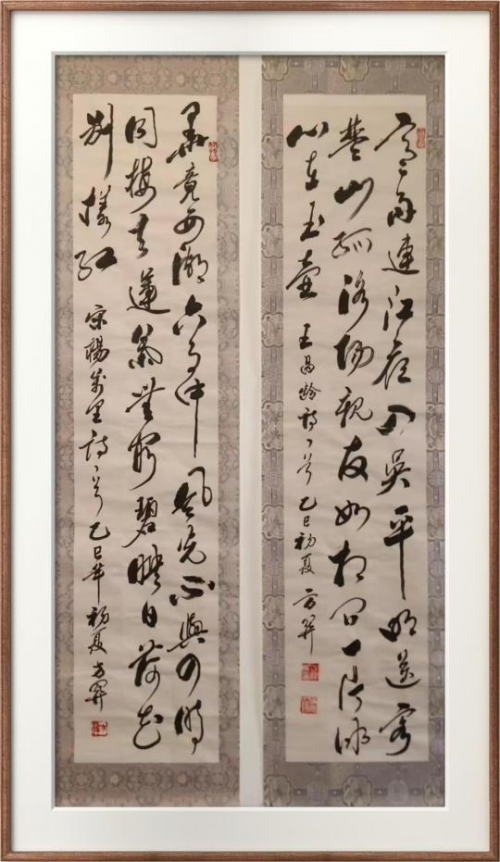 寒雨連江夜入吳平明送客
楚山孤洛陽親友如相問一片冰
心在玉壺
王昌齡詩一首 乙巳初夏 方
畢竟西湖六月中風光不與四時
同接天蓮葉無窮碧映日荷花
別樣紅
宋楊萬里詩一首 乙巳年初夏 方